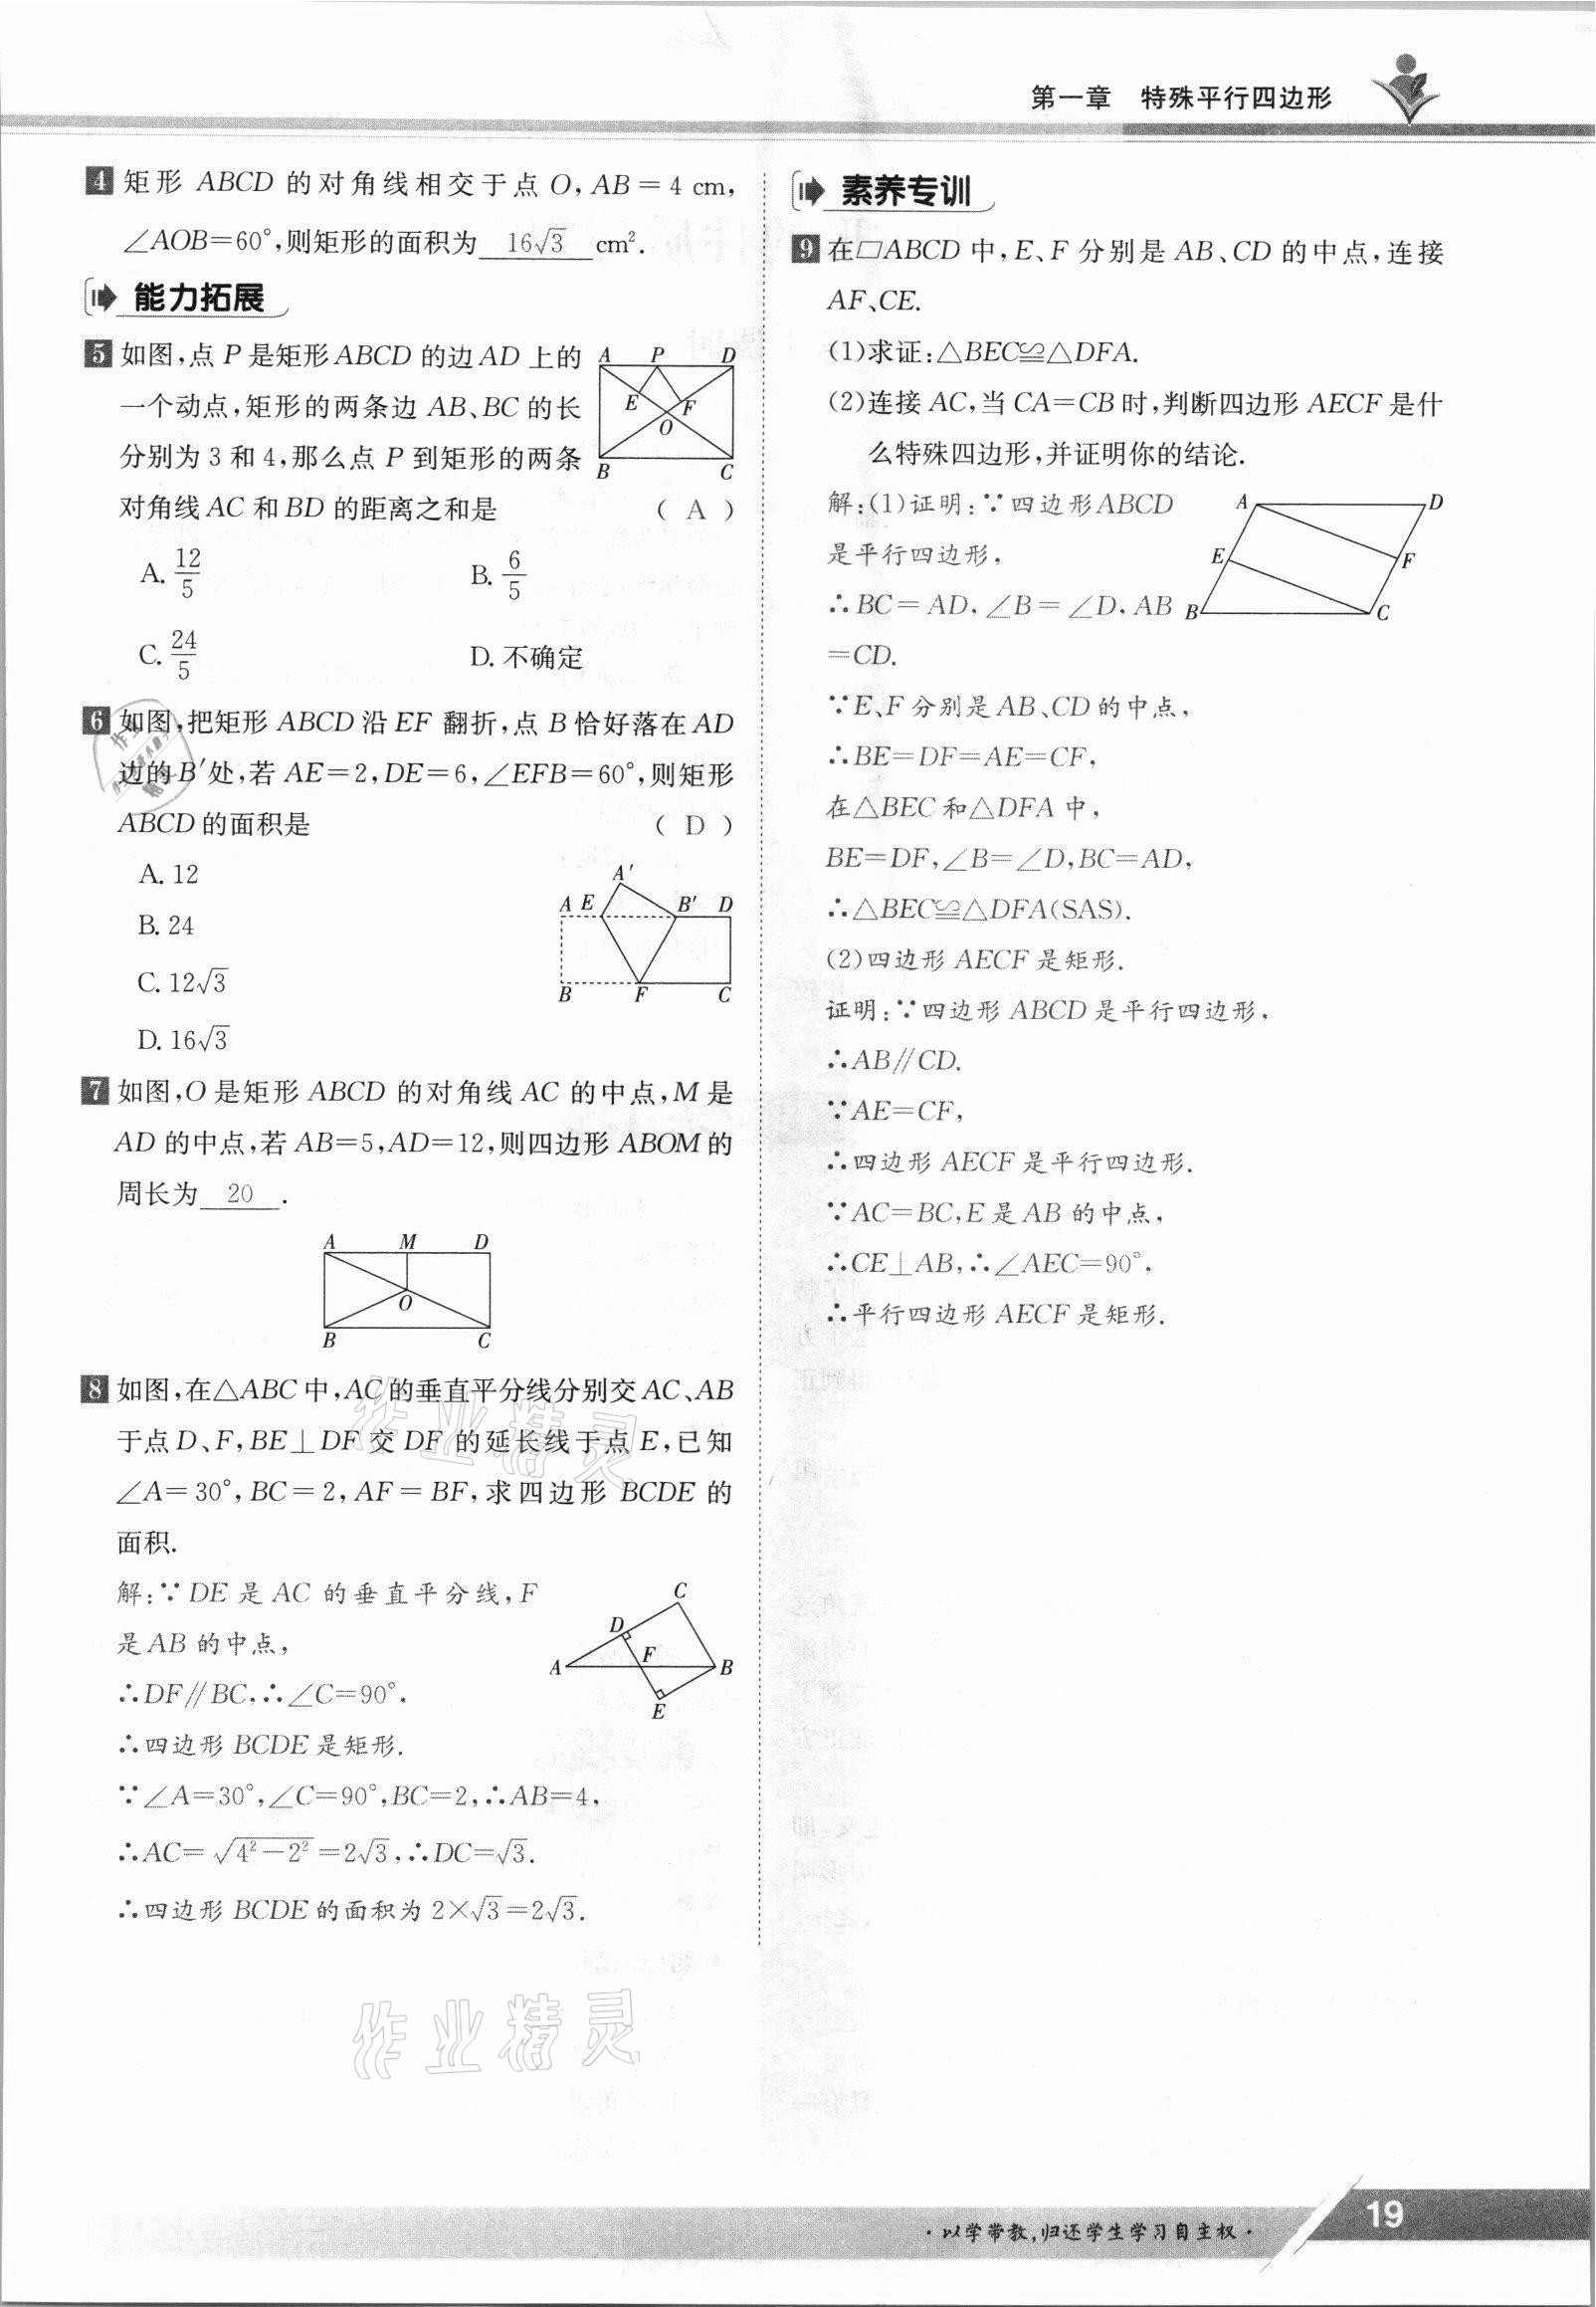 第一章 特殊平行四边形
4 矩形 ABCD 的对角线相交于点 O,AB=4 cm,
∠AOB=60°,则矩形的面积为 16√3 cm².
能力拓展
5 如图,点 P 是矩形 ABCD 的边 AD 上的
一个动点,矩形的两条边 AB、BC 的长
分别为 3 和 4,那么点 P 到矩形的两条
对角线 AC 和 BD 的距离之和是 ( A )
A P D
E F
O
B C
A. 12/5 B. 6/5
C. 24/5 D. 不确定
6 如图,把矩形 ABCD 沿 EF 翻折,点 B 恰好落在 AD
边的 B′处,若 AE=2,DE=6,∠EFB=60°,则矩形
ABCD 的面积是 ( D )
A. 12
B. 24
C. 12√3
D. 16√3
A′
A E B′ D
B F C
7 如图,O 是矩形 ABCD 的对角线 AC 的中点,M 是
AD 的中点,若 AB=5,AD=12,则四边形 ABOM 的
周长为 20 .
A M D
O
B C
8 如图,在△ABC 中,AC 的垂直平分线分别交 AC、AB
于点 D、F,BE⊥DF 交 DF 的延长线于点 E,已知
∠A=30°,BC=2,AF=BF,求四边形 BCDE 的
面积.
解:∵DE 是 AC 的垂直平分线,F
是 AB 的中点,
∴DF∥BC,∴∠C=90°.
∴四边形 BCDE 是矩形.
∵∠A=30°,∠C=90°,BC=2,∴AB=4,
∴AC=√(4²-2²)=2√3,∴DC=√3.
∴四边形 BCDE 的面积为 2×√3=2√3.
C
D
A F B
E
素养专训
9 在▱ABCD 中,E、F 分别是 AB、CD 的中点,连接
AF、CE.
(1)求证:△BEC≌△DFA.
(2)连接 AC,当 CA=CB 时,判断四边形 AECF 是什
么特殊四边形,并证明你的结论.
解:(1)证明:∵四边形 ABCD
是平行四边形,
∴BC=AD,∠B=∠D,AB
=CD.
A D
E F
B C
∵E、F 分别是 AB、CD 的中点,
∴BE=DF=AE=CF,
在△BEC 和△DFA 中,
BE=DF,∠B=∠D,BC=AD,
∴△BEC≌△DFA(SAS).
(2)四边形 AECF 是矩形.
证明:∵四边形 ABCD 是平行四边形,
∴AB∥CD.
∵AE=CF,
∴四边形 AECF 是平行四边形.
∵AC=BC,E 是 AB 的中点,
∴CE⊥AB,∴∠AEC=90°,
∴平行四边形 AECF 是矩形.
作业精灵
作业精灵
·以学带教,归还学生学习自主权·
19